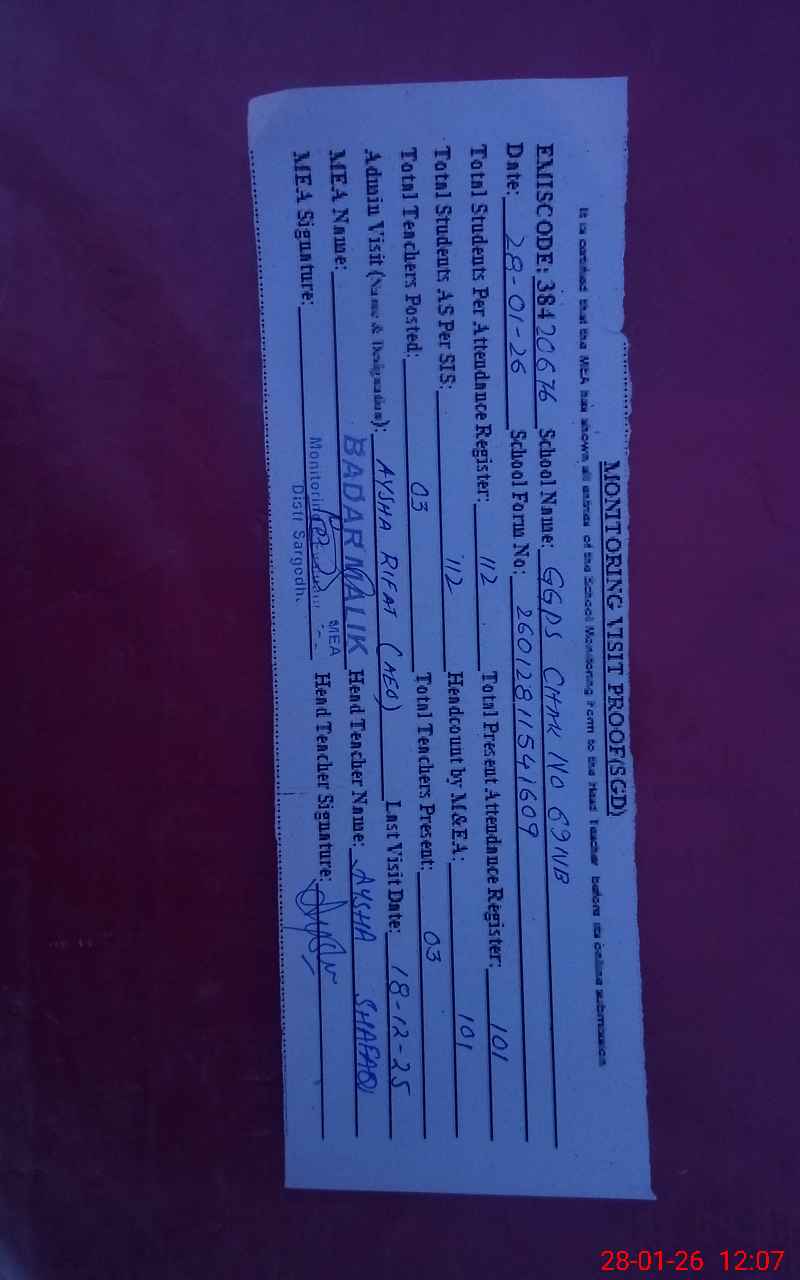 MONITORING VISIT PROOF(SGD)
It is certified that the MEA has shown all entries of the School Monitoring Form to the Head Teacher before its online submission
EMISCODE: 38420676 School Name: GGPS CHAK NO 69NB
Date: 28-01-26 School Form No: 26012811541609
Total Students Per Attendance Register: 112 Total Present Attendance Register: 101
Total Students AS Per SIS: 112 Headcount by M&EA: 101
Total Teachers Posted: 03 Total Teachers Present: 03
Admin Visit (Name & Designation): AYSHA RIFAT (AEO) Last Visit Date: 18-12-25
MEA Name: BADAR MALIK Head Teacher Name: AYSHA SHAFAQ
MEA Signature: Head Teacher Signature:
MEA
Distt Sargodh
28-01-26 12:07